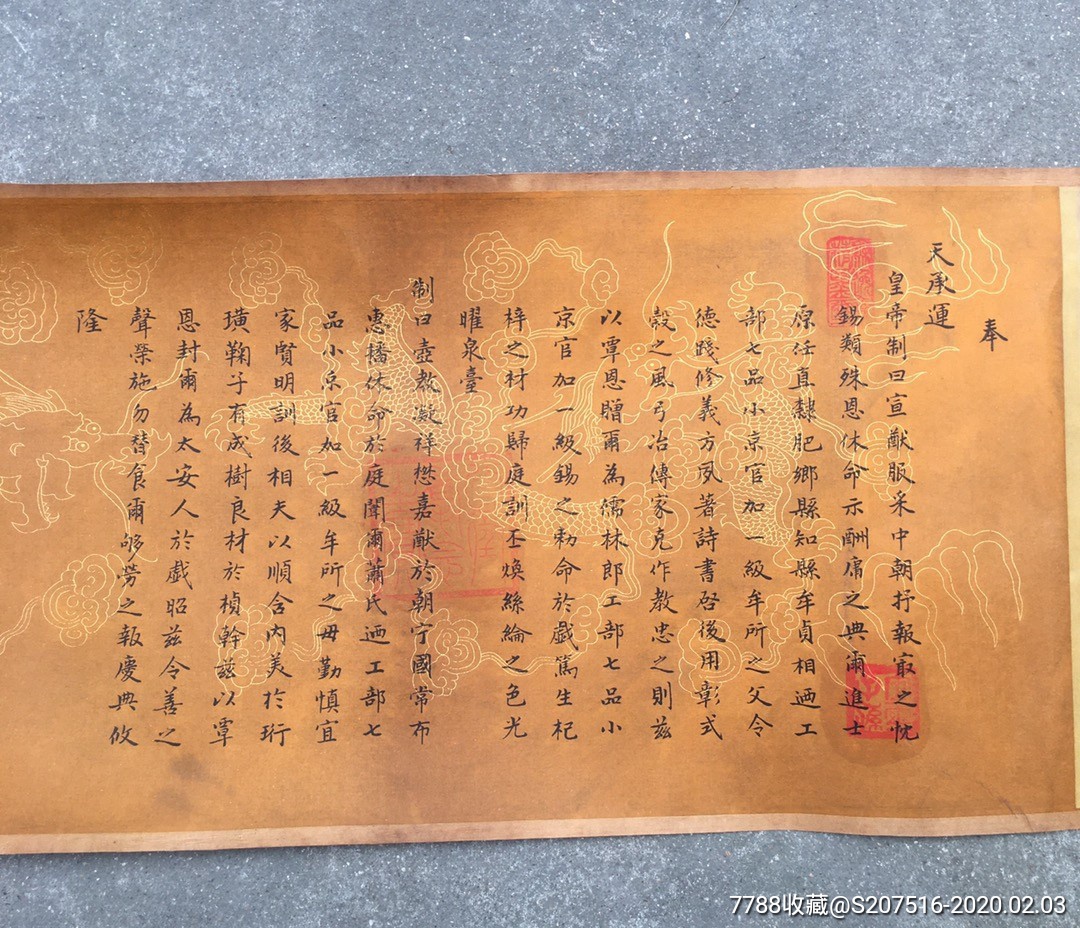 奉
天承運
皇帝制曰宣猷服采中朝抒報最之忱
錫類殊恩休命示酬庸之典爾進士
原任直隸肥鄉縣知縣牟貞相迺工
部七品小京官加一級牟所之父令
德踐修義方夙著詩書啓後用彰式
穀之風弓冶傳家克作教忠之則茲
以覃恩贈爾為儒林郎工部七品小
京官加一級錫之勅命於戲篤生杞
梓之材功歸庭訓丕煥絲綸之色光
曜泉臺
制曰壼教凝祥懋嘉猷於朝宁國常布
惠播休命於庭闈爾蕭氏迺工部七
品小京官加一級牟所之母勤慎宜
家賢明訓後相夫以順含內美於珩
璜鞠子有成樹良材於楨幹茲以覃
恩封爾為太安人於戲昭茲令善之
聲榮施勿替食爾劬勞之報慶典攸
隆
7788收藏@S207516-2020.02.03